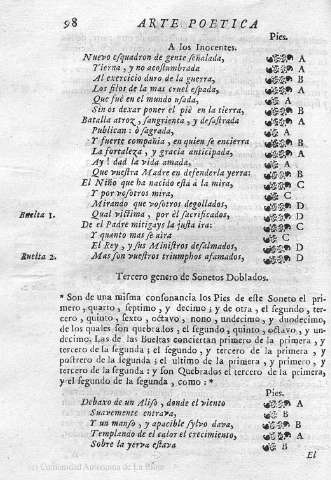 98 ARTE POETICA
Pies.
A los Inocentes.
Nuevo esquadron de gente señalada, A
Tierna, y no acostumbrada A
Al exercicio duro de la guerra, B
Los filos de la mas cruel espada, A
Que fuè en el mundo usada, A
Sin os dexar poner el piè en la tierra, B
Batalla atroz, sangrienta, y desastrada A
Publican: ò sagrada, A
Y fuerte compañia, en quien se encierra B
La fortaleza, y gracia anticipada, A
Ay! dad la vida amada, A
Que vuestra Madre en defenderla yerra: B
El Niño que ha nacido està à la mira, C
Y por vosotros mira, C
Mirando que vosotros degollados, D
Buelta 1. Qual victima, por el sacrificados, D
De el Padre mitigays la justa ira: C
Y quanto mas se aira C
El Rey, y sus Ministros desalmados, D
Buelta 2. Mas son vuestros triumphos afamados, D
Tercero genero de Sonetos Doblados.
* Son de una misma consonancia los Pies de este Soneto el pri-
mero, quarto, septimo, y decimo; y de otra, el segundo, ter-
cero, quinto, sexto, octavo, nono, undecimo, y duodecimo,
de los quales son quebrados; el segundo, quinto, octavo, y un-
decimo. Las de las Bueltas conciertan primero de la primera, y
tercero de la segunda; el segundo, y tercero de la primera, y
postrero de la segunda; el ultimo de la primera, y primero, y
tercero de la segunda: y son Quebrados el tercero de la primera,
y el segundo de la segunda, como: *
Pies.
Debaxo de un Aliso, donde el viento A
Suavemente entrava, B
Y un manso, y apacible sylvo dava, B
Templando de el calor el crecimiento, A
Sobre la yerva estava B
El
(c) Comunidad Autónoma de La Rioja